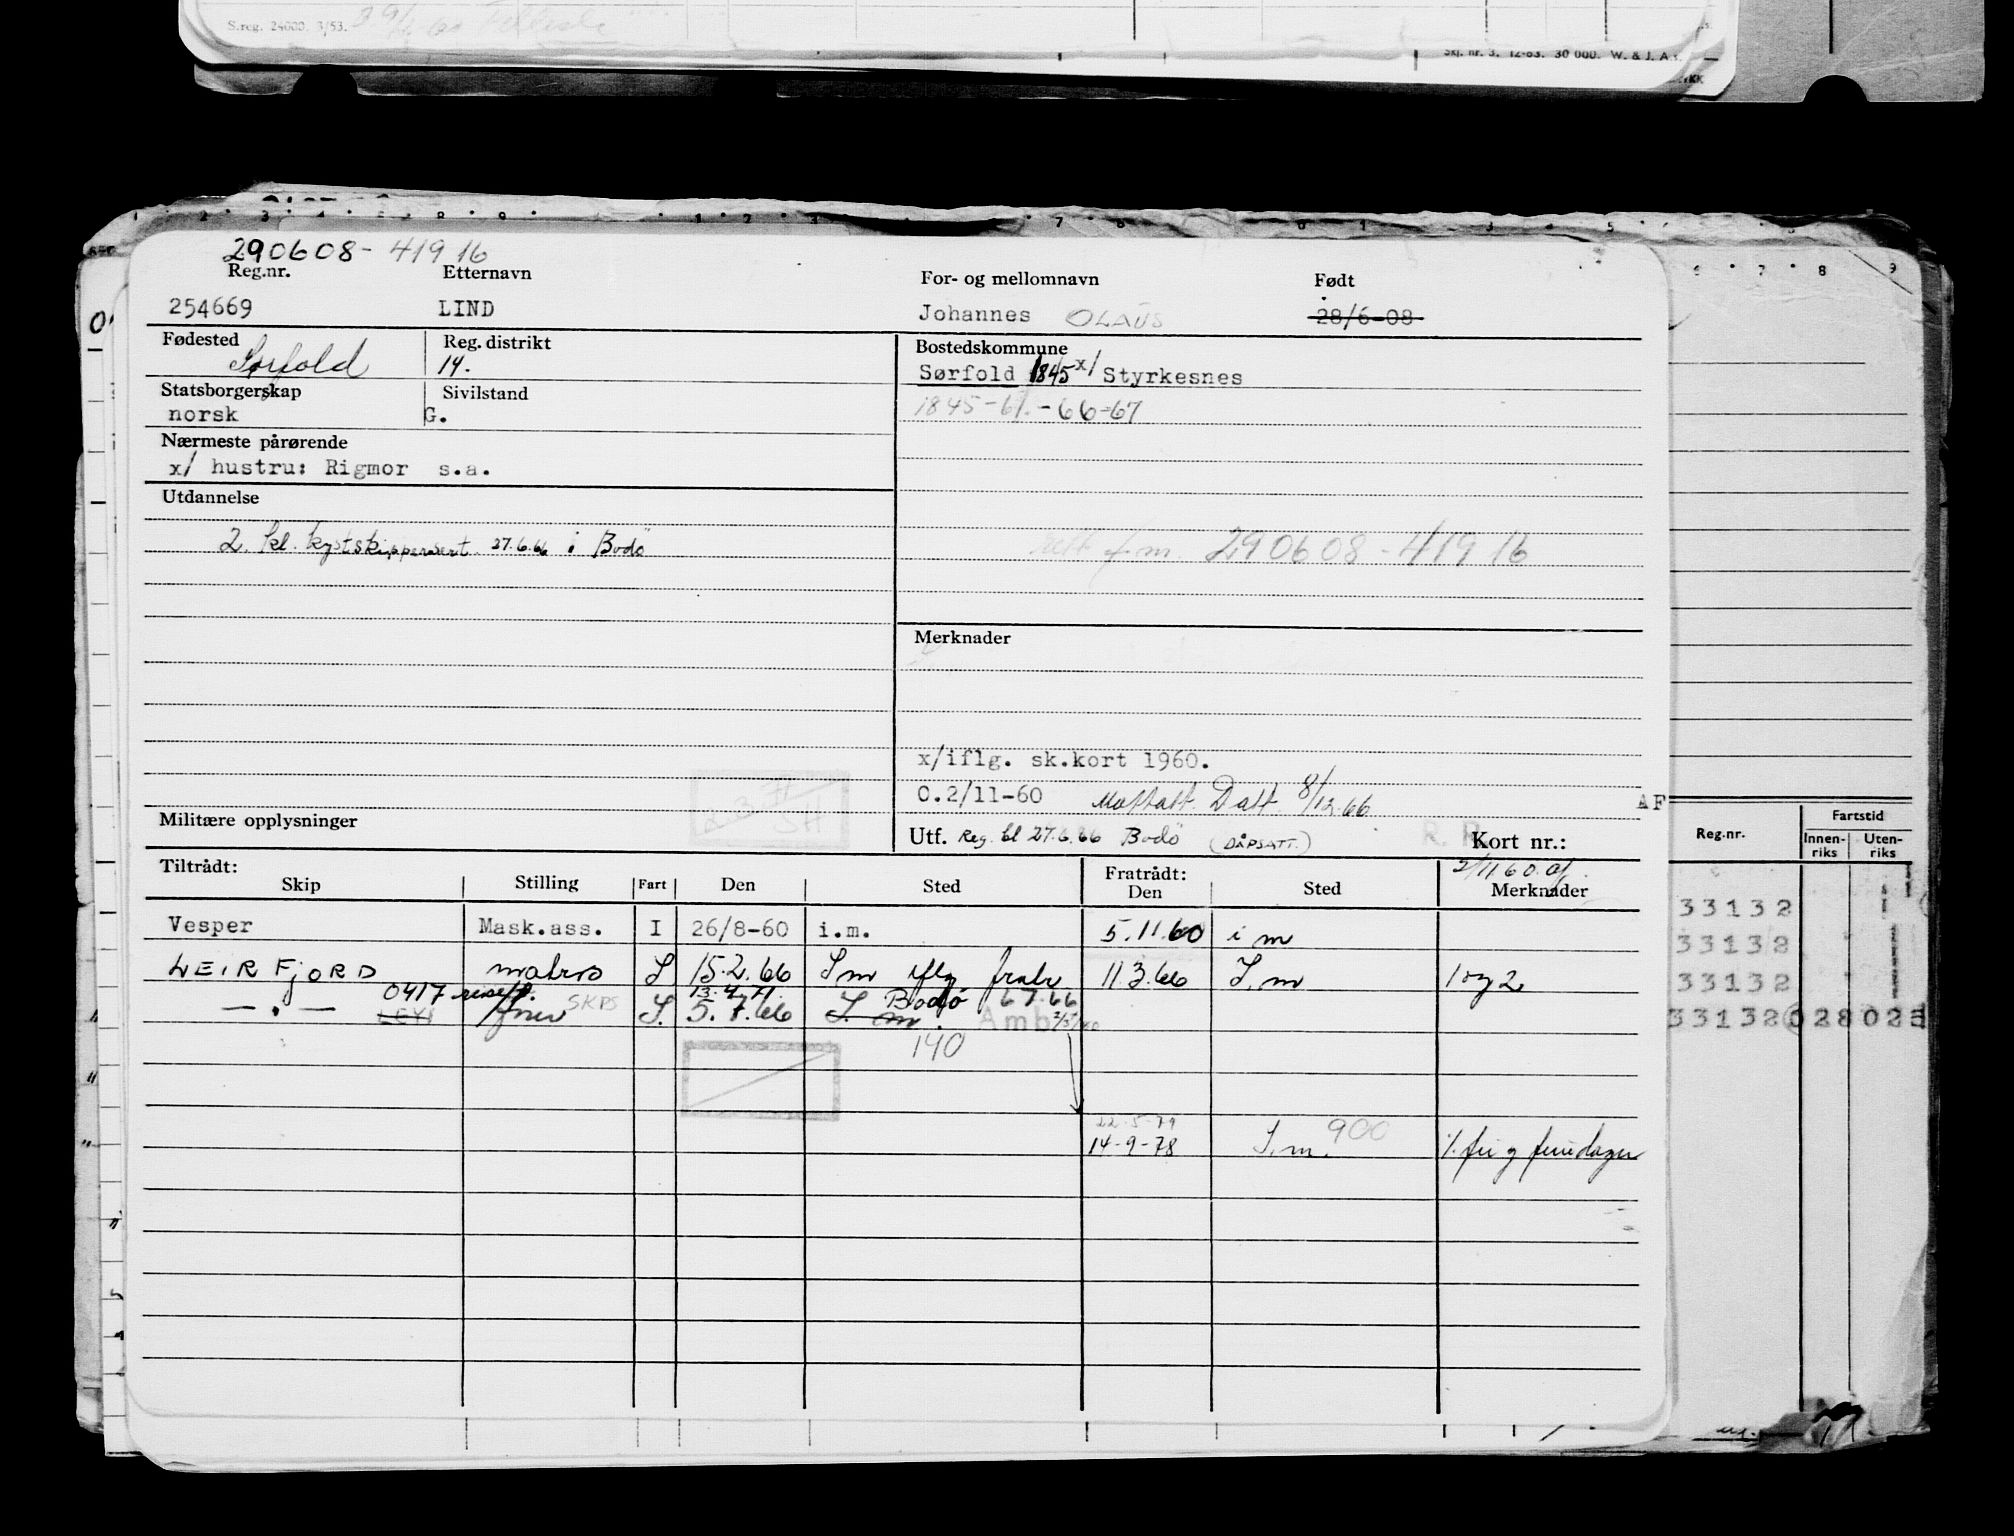 S.reg. 24000. 3/53.
Skj. nr. 3. 12-63. 30 000. W. & J. A
290608-41916
Reg.nr. Etternavn For- og mellomnavn Født
254669 LIND Johannes OLAUS 28/6-08
Fødested Reg. distrikt Bostedskommune
Sørfold 14. Sørfold 1845 x/ Styrkesnes
Statsborgerskap Sivilstand
norsk G. 1845-61.-66-67
Nærmeste pårørende
x/ hustru: Rigmor s.a.
Utdannelse
2. kl. kystskippersert. 27.6.66 i Bodö
f m. 290608-41916
Merknader
x/iflg. sk.kort 1960.
0.2/11-60 Mottatt Datt 8/12.66
AF
Militære opplysninger
Utf. Reg. bl 27.6.66 Bodö (DÅPSATT.) Kort nr.:
Reg.nr. Fartstid
Innen-riks Uten-riks
Tiltrådt: Fratrådt: 2/11 60
Skip Stilling Fart Den Sted Den Sted Merknader
Vesper Mask.ass. I 26/8-60 i.m. 5.11.60 i m
33132
33132
WEIRFJORD matros S 15.2.66 S m iflg fratr 11.3.66 S.m 1 og 2
33132
0417 13.4.71 Bodø 6 7.66
— . — SKPS S. 5.7.66 S. m. Amb
33132 028 025
140
22-5-79
14-9-78 S.m. 900 /. fri g feriedager